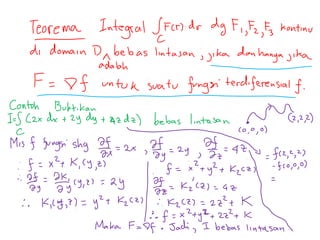 Teorema Integral ∫ F(r) dr dg F₁, F₂, F₃ kontinu
C
di domain D bebas lintasan, jika dan hanya jika
adalah
F = ∇f untuk suatu fungsi terdiferensial f.
Contoh Buktikan
I = ∫ (2x dx + 2y dy + 4z dz) bebas lintasan
C
(0,0,0) (2,2,2)
Mis f fungsi shg ∂f/∂x = 2x, ∂f/∂y = 2y, ∂f/∂z = 4z
= f(2,2,2)
- f(0,0,0)
=
∴ f = x² + K₁(y,z)
∴ ∂f/∂y = ∂K₁/∂y (y,z) = 2y
∴ K₁(y,z) = y² + K₂(z)
f = x² + y² + K₂(z)
∂f/∂z = K₂'(z) = 4z
∴ K₂(z) = 2z² + K
∴ f = x² + y² + 2z² + K
Maka F = ∇f. Jadi, I bebas lintasan